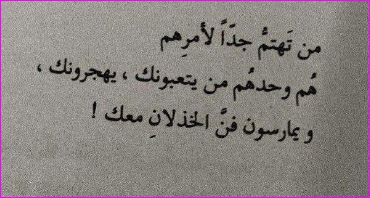 من تَهتمُّ جدّاً لأمرِهم
هُم وحدهُم من يتعبونك ، يهجرونك ،
و يمارسون فنَّ الخذلانِ معك !